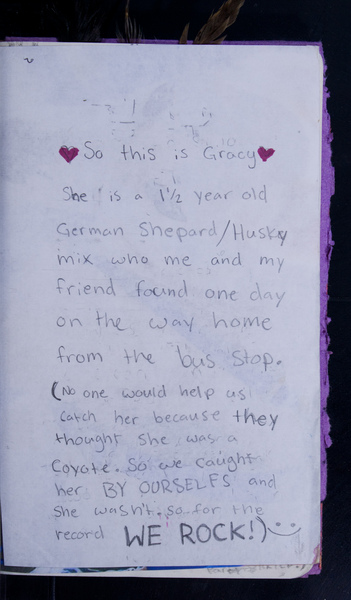 ♥ So this is Gracy ♥
She is a 1 1/2 year old
German Shepard/Husky
mix who me and my
friend found one day
on the way home
from the bus stop.
(No one would help us
catch her because they
thought she was a
Coyote. So we caught
her BY OURSELFS and
she wasn't. so for the
record WE ROCK!)